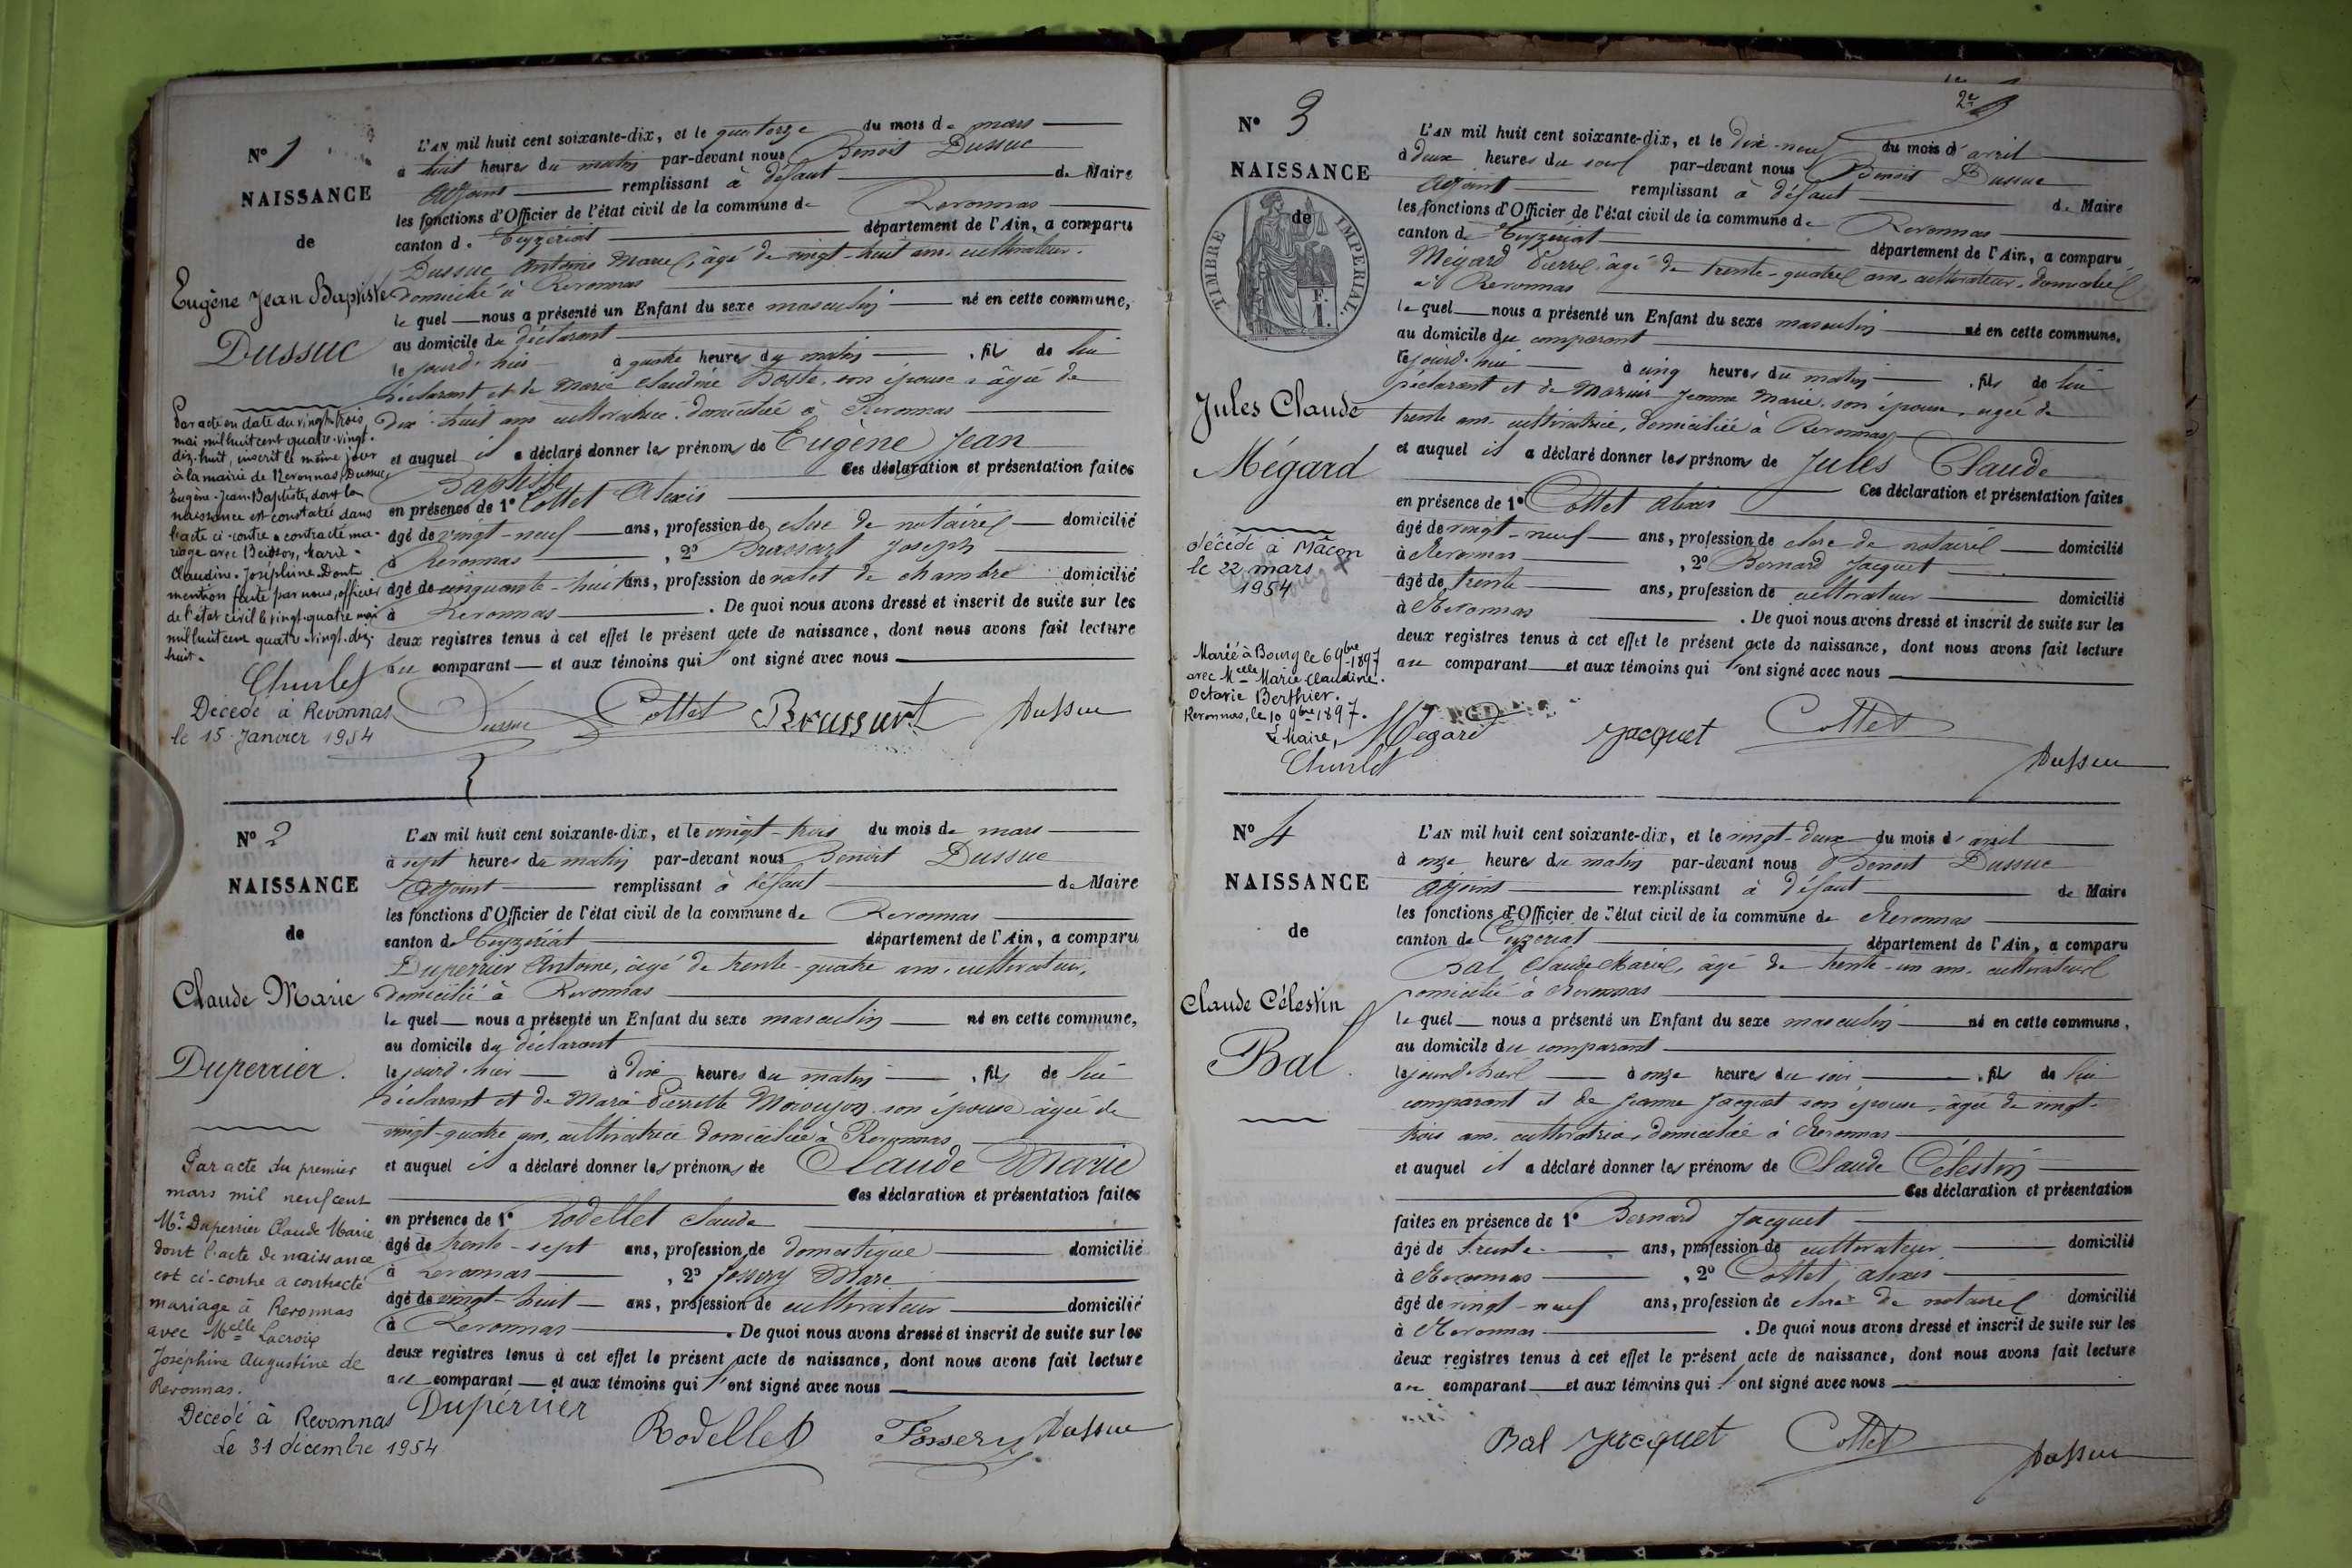 N° 1
NAISSANCE
de
Eugène Jean Baptiste
Dussuc
Par acte en date du vingt-trois
mai mil huit cent quatre-vingt-
dix-huit, inscrit le même jour
à la mairie de Revonnas, Dussuc
Eugène-Jean-Baptiste, dont la
naissance est constatée dans
l'acte ci-contre a contracté ma-
riage avec Marie-
Claudine-Joséphine. Dont
mention faite par nous, officier
de l'état civil le vingt-quatre mai
mil huit cent quatre-vingt-dix-
huit.
Décédé à Revonnas
le 15 Janvier 1954
L'AN mil huit cent soixante-dix, et le quatorze du mois de mars
à huit heures du matin par-devant nous Benoit Dussuc
Adjoint remplissant à défaut de Maire
les fonctions d'Officier de l'état civil de la commune de Revonnas
canton de Ceyzériat département de l'Ain, a comparu
Dussuc Antoine Marie, âgé de vingt-huit ans, cultivateur,
domicilié à Revonnas
lequel nous a présenté un Enfant du sexe masculin né en cette commune,
au domicile du déclarant
le jourd'hui à quatre heures du matin, fils de lui
déclarant et de Marie Claudine son épouse, âgée de
dix-huit ans cultivatrice, domiciliée à Revonnas
et auquel il a déclaré donner les prénoms de Eugène Jean
Baptiste Ces déclaration et présentation faites
en présence de 1° Cottet Alexis
âgé de vingt-neuf ans, profession de clerc de notaire domicilié
à Revonnas, 2° Brussart Joseph
âgé de cinquante-huit ans, profession de valet de chambre domicilié
à Revonnas. De quoi nous avons dressé et inscrit de suite sur les
deux registres tenus à cet effet le présent acte de naissance, dont nous avons fait lecture
au comparant et aux témoins qui l'ont signé avec nous
Dussuc Cottet Brussart Dussuc
N° 2
NAISSANCE
de
Claude Marie
Duperrier.
Par acte du premier
mars mil neuf cent
Mr Duperrier Claude Marie
dont l'acte de naissance
est ci-contre a contracté
mariage à Revonnas
avec Melle Lacroix
Joséphine Augustine de
Revonnas.
Décédé à Revonnas
Le 31 décembre 1954
L'AN mil huit cent soixante-dix, et le vingt-trois du mois de mars
à sept heures du matin par-devant nous Benoit Dussuc
Adjoint remplissant à défaut de Maire
les fonctions d'Officier de l'état civil de la commune de Revonnas
canton de Ceyzériat département de l'Ain, a comparu
Duperrier Antoine, âgé de trente-quatre ans, cultivateur,
domicilié à Revonnas
lequel nous a présenté un Enfant du sexe masculin né en cette commune,
au domicile du déclarant
le jourd'hier à dix heures du matin, fils de lui
déclarant et de Marie Pierrette son épouse âgée de
vingt-quatre ans, cultivatrice domiciliée à Revonnas
et auquel il a déclaré donner les prénoms de Claude Marie
Ces déclaration et présentation faites
en présence de 1° Rodellet Claude
âgé de trente-sept ans, profession de domestique domicilié
à Revonnas, 2° Fossery Marc
âgé de vingt-huit ans, profession de cultivateur domicilié
à Revonnas. De quoi nous avons dressé et inscrit de suite sur les
deux registres tenus à cet effet le présent acte de naissance, dont nous avons fait lecture
au comparant et aux témoins qui l'ont signé avec nous
Duperrier Rodellet Fossery Dussuc
2e
N° 3
NAISSANCE
de
TIMBRE IMPERIAL.
F.
1.
Jules Claude
Mégard
décédé à Mâcon
le 22 mars
1954
Marié à Bourg le 6 9bre 1897
avec Melle Marie Claudine
Octavie Berthier.
Revonnas, le 10 9bre 1897.
Le Maire,
L'AN mil huit cent soixante-dix, et le dix-neuf du mois d'avril
à deux heures du soir par-devant nous Benoit Dussuc
Adjoint remplissant à défaut de Maire
les fonctions d'Officier de l'état civil de la commune de Revonnas
canton de Ceyzériat département de l'Ain, a comparu
Mégard Pierre, âgé de trente-quatre ans, cultivateur, domicilié
à Revonnas
lequel nous a présenté un Enfant du sexe masculin né en cette commune,
au domicile du comparant
le jourd'hui à cinq heures du matin, fils de lui
déclarant et de Jeanne Marie, son épouse, agée de
trente ans, cultivatrice, domiciliée à Revonnas
et auquel il a déclaré donner les prénoms de Jules Claude
Ces déclaration et présentation faites
en présence de 1° Cottet Alexis
âgé de vingt-neuf ans, profession de clerc de notaire domicilié
à Revonnas, 2° Bernard Jacquet
âgé de trente ans, profession de cultivateur domicilié
à Revonnas. De quoi nous avons dressé et inscrit de suite sur les
deux registres tenus à cet effet le présent acte de naissance, dont nous avons fait lecture
au comparant et aux témoins qui l'ont signé avec nous
Mégard Jacquet Cottet Dussuc
N° 4
NAISSANCE
de
Claude Célestin
Bal.
L'AN mil huit cent soixante-dix, et le vingt-deux du mois d'avril
à onze heures du matin par-devant nous Benoit Dussuc
Adjoint remplissant à défaut de Maire
les fonctions d'Officier de l'état civil de la commune de Revonnas
canton de Ceyzériat département de l'Ain, a comparu
Bal Claude Marie, âgé de trente-un ans, cultivateur
domicilié à Revonnas
lequel nous a présenté un Enfant du sexe masculin né en cette commune,
au domicile du comparant
le jourd'hier à onze heures du soir, fils de lui
comparant et de Jeanne Jacquet son épouse, âgée de vingt-
trois ans, cultivatrice, domiciliée à Revonnas
et auquel il a déclaré donner les prénoms de Claude Célestin
Ces déclaration et présentation
faites en présence de 1° Bernard Jacquet
âgé de trente ans, profession de cultivateur domicilié
à Revonnas, 2° Cottet, Alexis
âgé de vingt-neuf ans, profession de clerc de notaire domicilié
à Revonnas. De quoi nous avons dressé et inscrit de suite sur les
deux registres tenus à cet effet le présent acte de naissance, dont nous avons fait lecture
au comparant et aux témoins qui l'ont signé avec nous
Bal Jacquet Cottet Dussuc